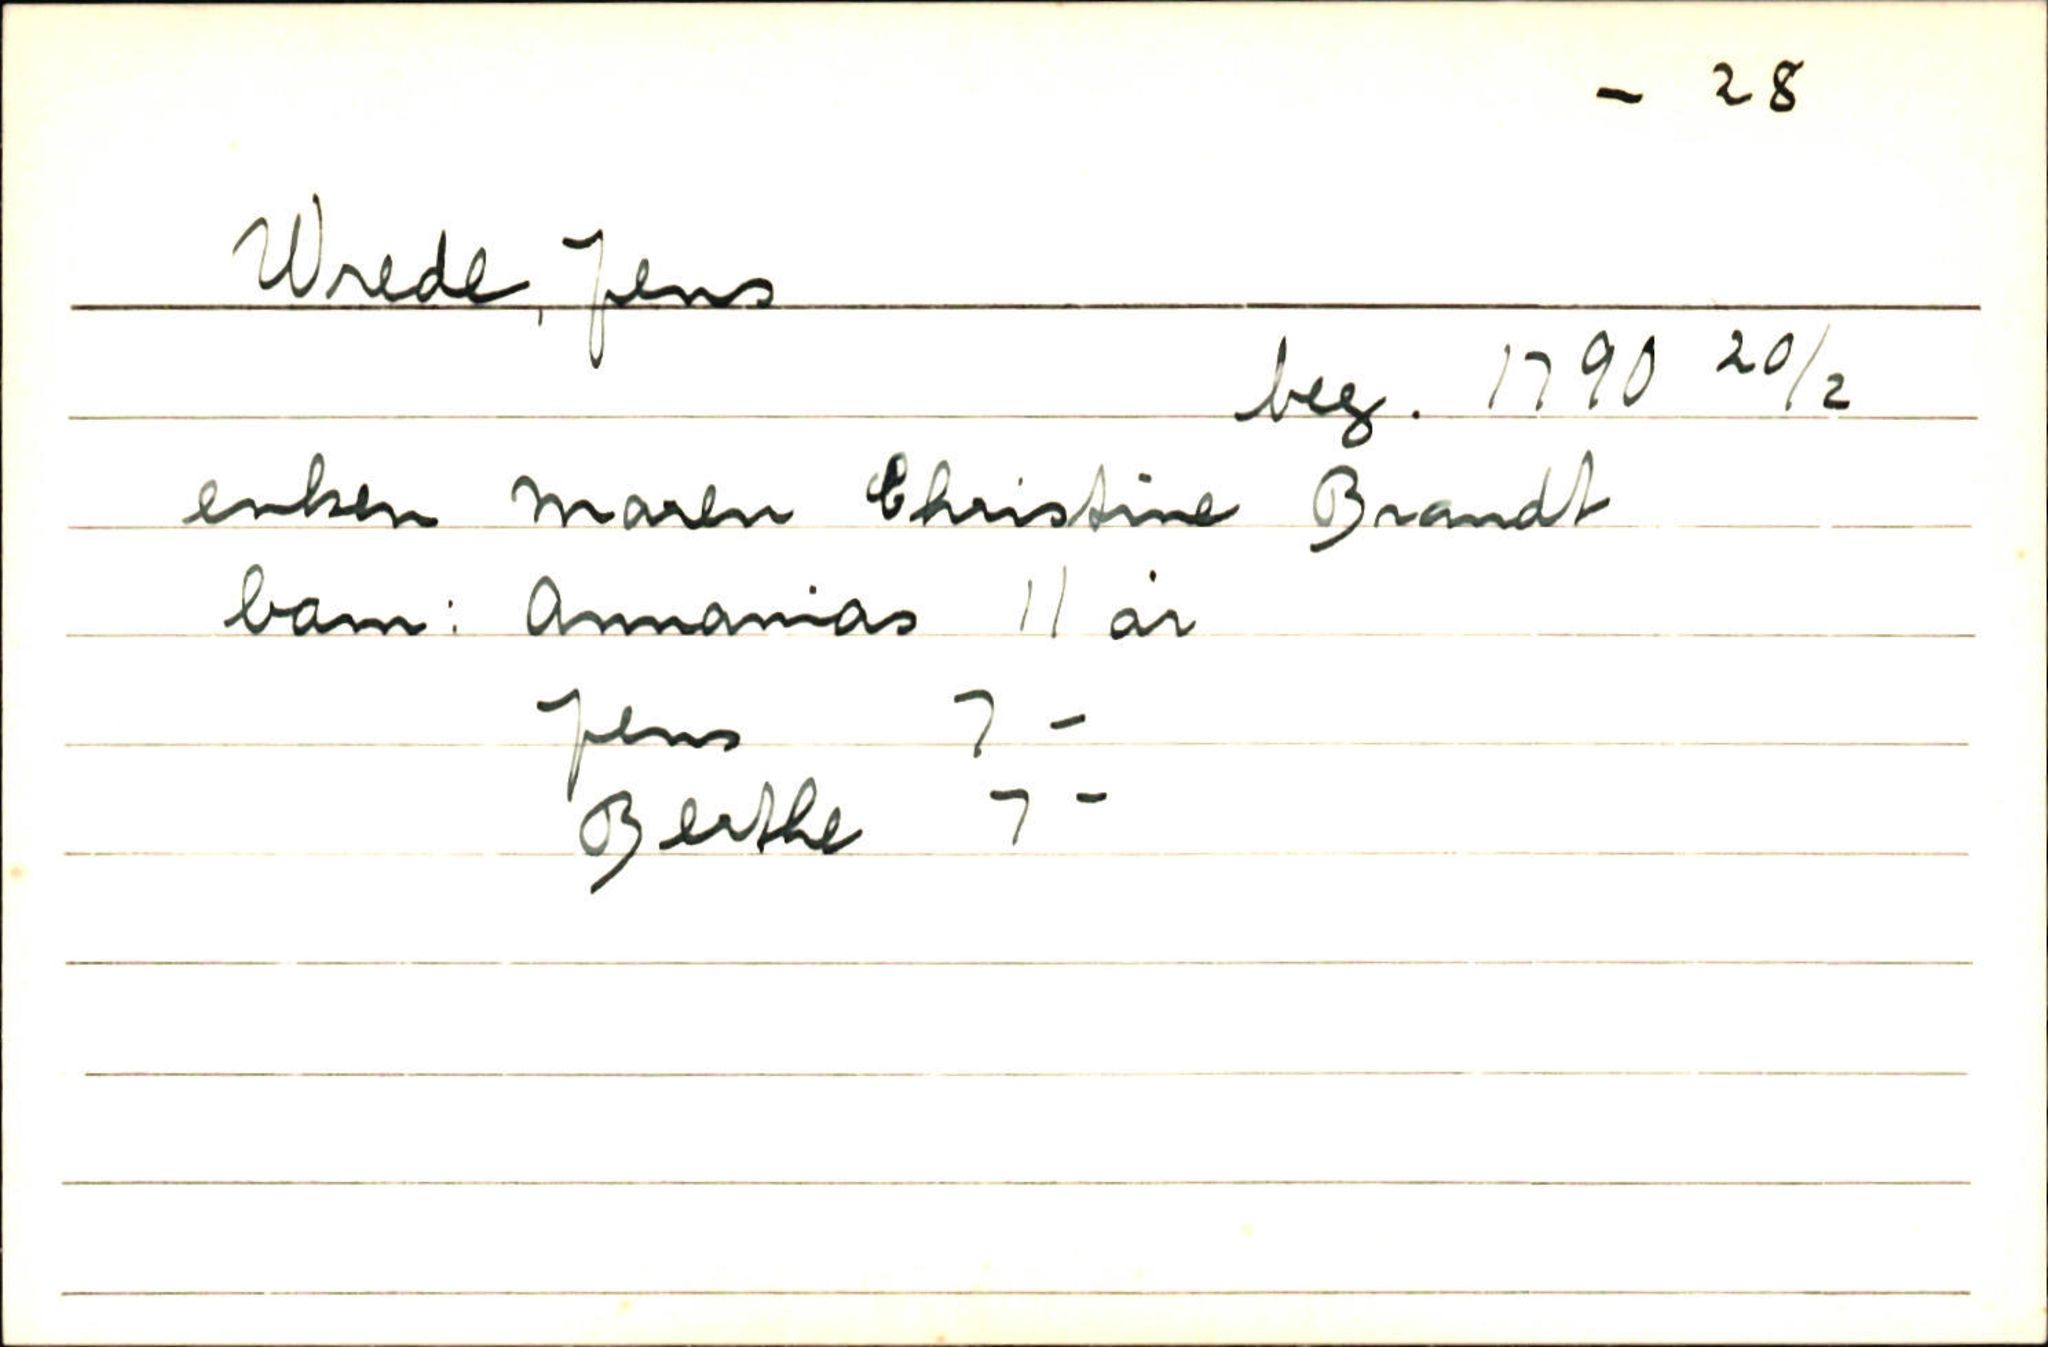 - 28
Wrede, Jens
beg. 1790 20/2
enken Maren Christine Brandt
barn: Annanias 11 år
Jens 7 -
Berthe 7 -